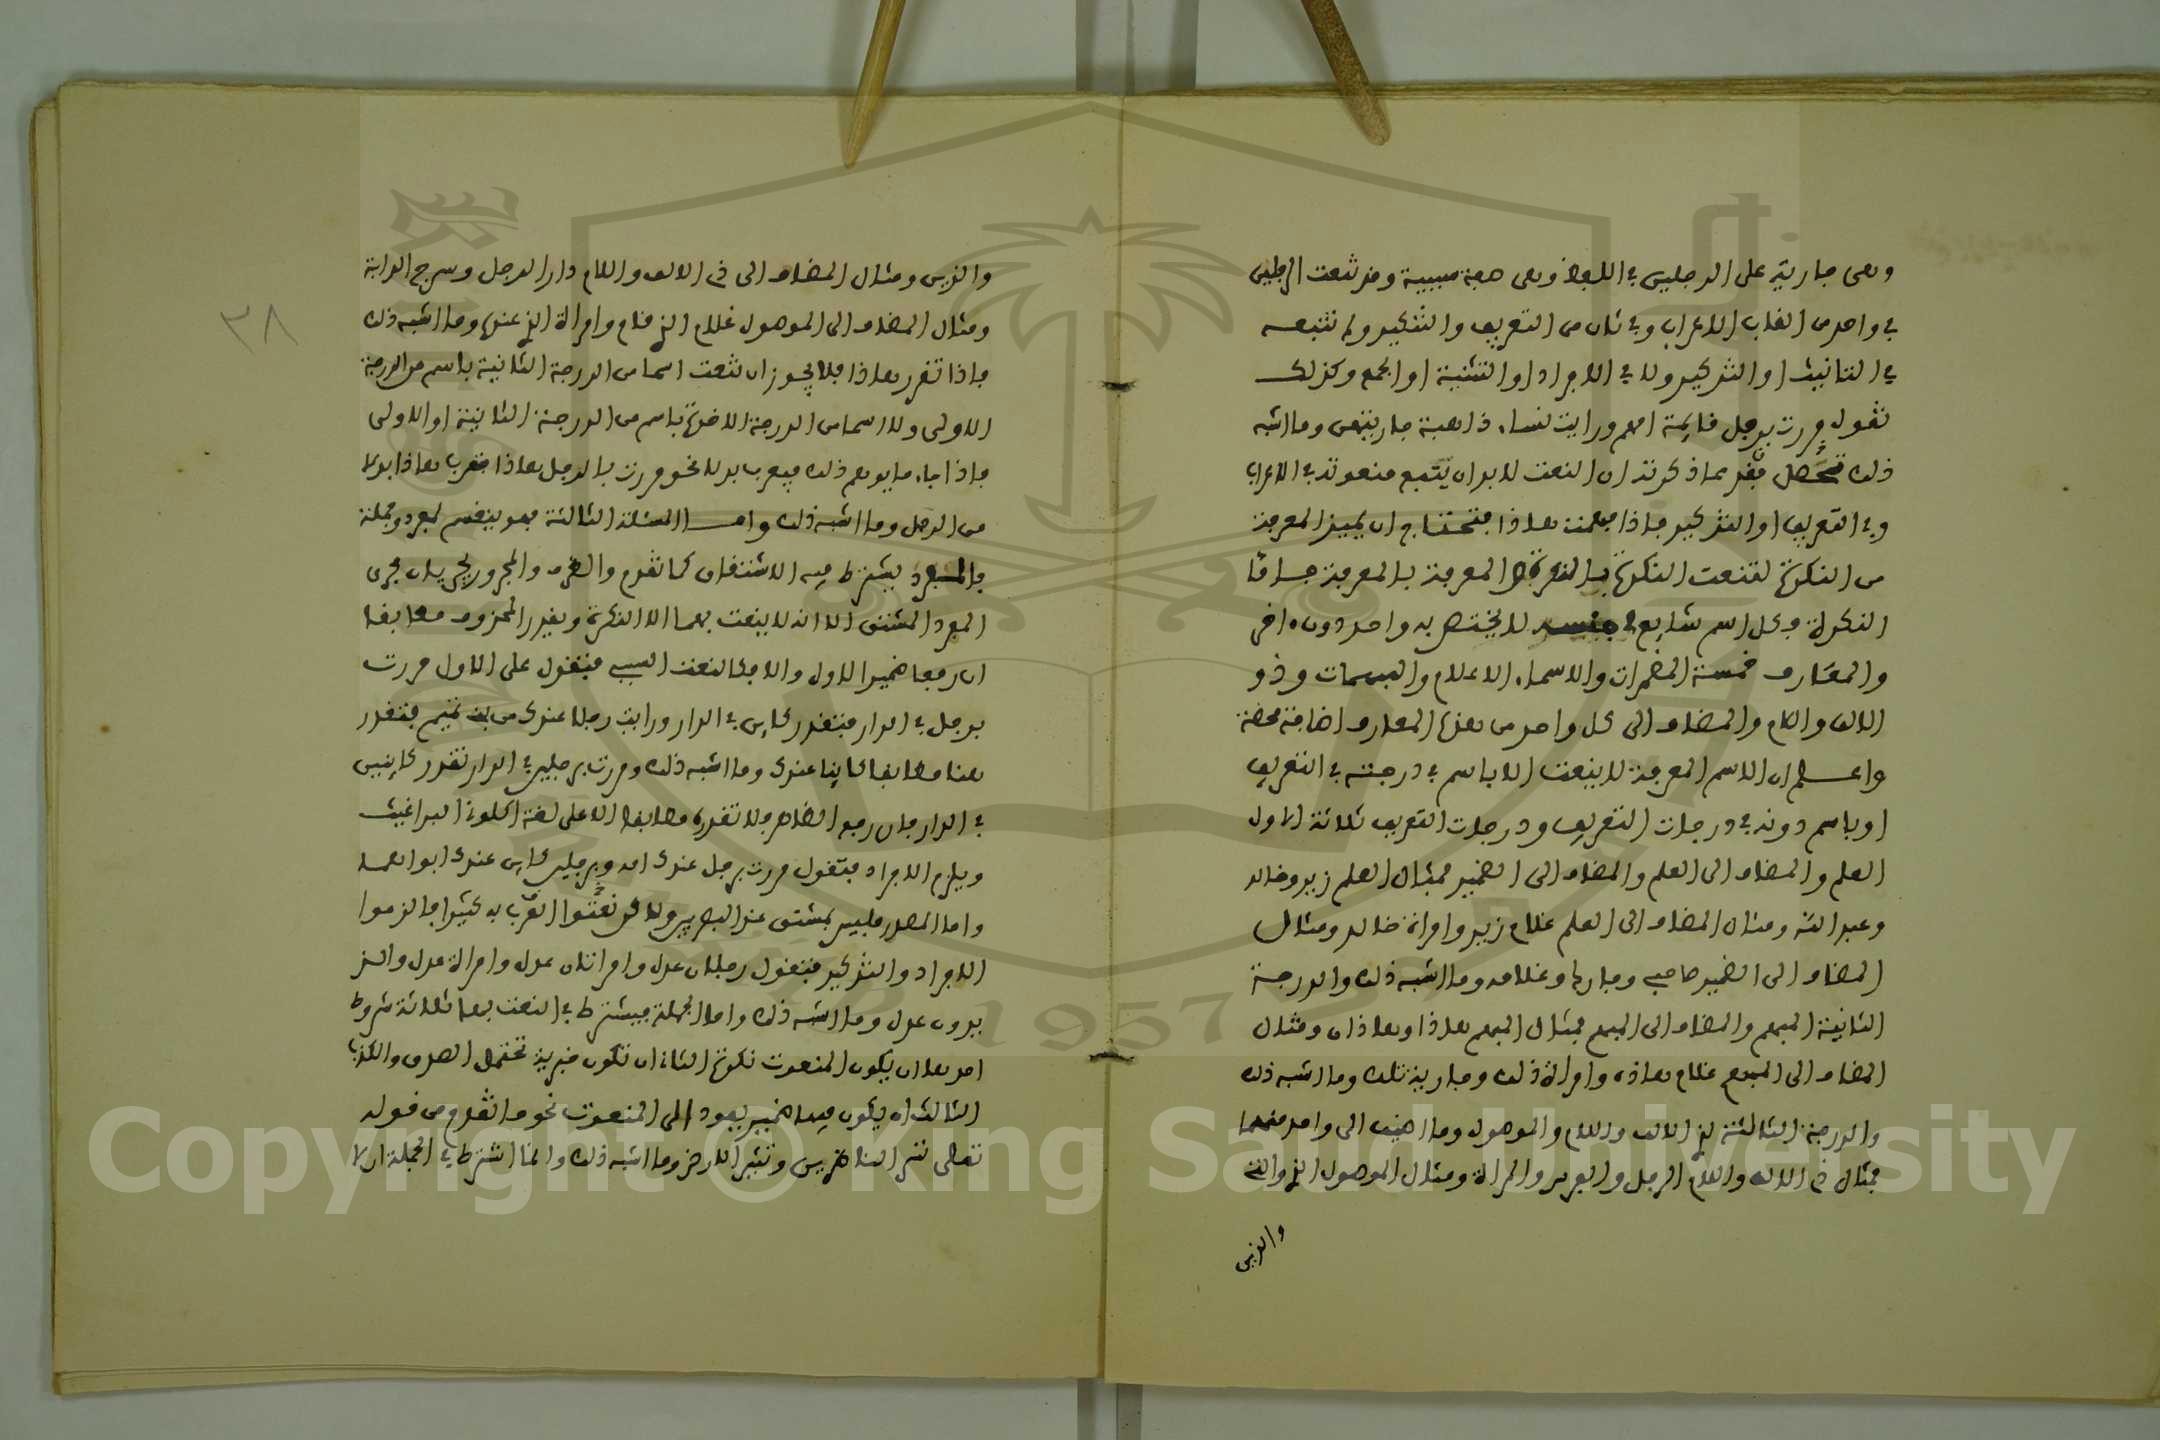 وهى جارية على الرجلين في اللفظ وهى صفة سببية وقد تبعت الرجلين
في واحد من القاب الاعراب وفي ثان من التعريف والتنكير ولم تتبعه
في التانيث او التذكير ولا في الافراد او التثنية او الجمع وكذلك
تقول مررت برجل قايمة امهم ورايت نساء ذاهبة جاريتهن وما اشبه
ذلك تحصل فقد مما ذكرته ان النعت لا بد ان يتبع منعوته في الاعراب
وفي التعريف او التذكير فاذا فهمت هاذا فتحتاج ان تميز المعرفة
من النكرة لتنعت النكرة بالنكرة والمعرفة بالمعرفة فاما
النكرة فكل اسم شايع في جنسه لا يختص به واحد دون ءاخر
والمعارف خمسة المضمرات والاسماء الاعلام والمبهمات وذو
الالف واللام والمضاف الى كل واحد من هذه المعارف اضافة محضة
واعلم ان الاسم المعرفة لا ينعت الا باسم في درجته في التعريف
او باسم دونه في درجات التعريف ودرجات التعريف ثلاثة الاول
العلم والمضاف الى العلم والمضاف الى الضمير فمثال العلم زيد وخالد
وعبد الله ومثال المضاف الى العلم غلام زيد وامراة خالد ومثال
المضاف الى الضمير صاحبي وجارها وغلامه وما اشبه ذلك والدرجة
الثانية المبهم والمضاف الى المبهم فمثال المبهم هاذا وهاذان ومثال
المضاف الى المبهم غلام هاذه وامراة ذلك وجارية تلك وما اشبه ذلك
والدرجة الثالثة ذو الالف واللام والموصول وما اضيف الى واحد منهما
فمثال ذي الالف واللام الرجل والفرس والمراة ومثال الموصول الذي والتي
والذين
٣٨
والذين ومثال المضاف الى ذي الالف واللام دار الرجل وسرج الدابة
ومثال المضاف الى الموصول غلام الذي قام وامراة الذي عندي وما اشبه ذلك
فاذا تقرر هاذا فلا يجوز ان تنعت اسما من الدرجة الثانية باسم من الدرجة
الاولى ولا اسما من الدرجة الاخيرة باسم من الدرجة الثانية او الاولى
فاذا جاء ما يوهم ذلك فيعرب بدلا نحو مررت بالرجل هاذا فتعرب هاذا بدلا
من الرجل وما اشبه ذلك واما المسئلة الثالثة فهو ينقسم لمفرد وجملة
فالمفرد يشترط فيه الاشتقاق كما تقدم والظرف والمجرور يجريان مجرى
المفرد المشتق الا انه لا ينعت بهما الا النكرة ويقدر المحذوف مطابقا
ان رفعا ضمير الاول والا فكالنعت السببي فتقول على الاول مررت
برجل في الدار فتقدر كاين في الدار ورايت رجلا عندي من بني تميم فتقدر
هنا مطابقا كاينا عندي وما اشبه ذلك ومررت برجلين في الدار تقدر كاينين
في الدار فان رفع الظاهر فلا تقدره مطابقا الا على لغة اكلوني البراغيث
ويلزم الافراد فتقول مررت برجل عندي امه وبرجلين كاين عندي ابواهما
واما المصدر فليس بمشتق عند البصريين ولاكن نعتوا العرب به كثيرا فالزموا
الافراد والتذكير فتقول رجلان عدل وامراتان عدل وامراة عدل والـ
بدون عدل وما اشبه ذلك واما الجملة فيشترط في النعت بها ثلاثة شروط
احدها ان يكون المنعوت نكرة الثاني ان تكون خبرية تحتمل الصدق والكذب
الثالث ان يكون فيها ضمير يعود الى المنعوت نحو ما تقدم من قوله
تعلى تسر الناظرين وتثير الارض وما اشبه ذلك وانما اشترط في الجملة ان لا